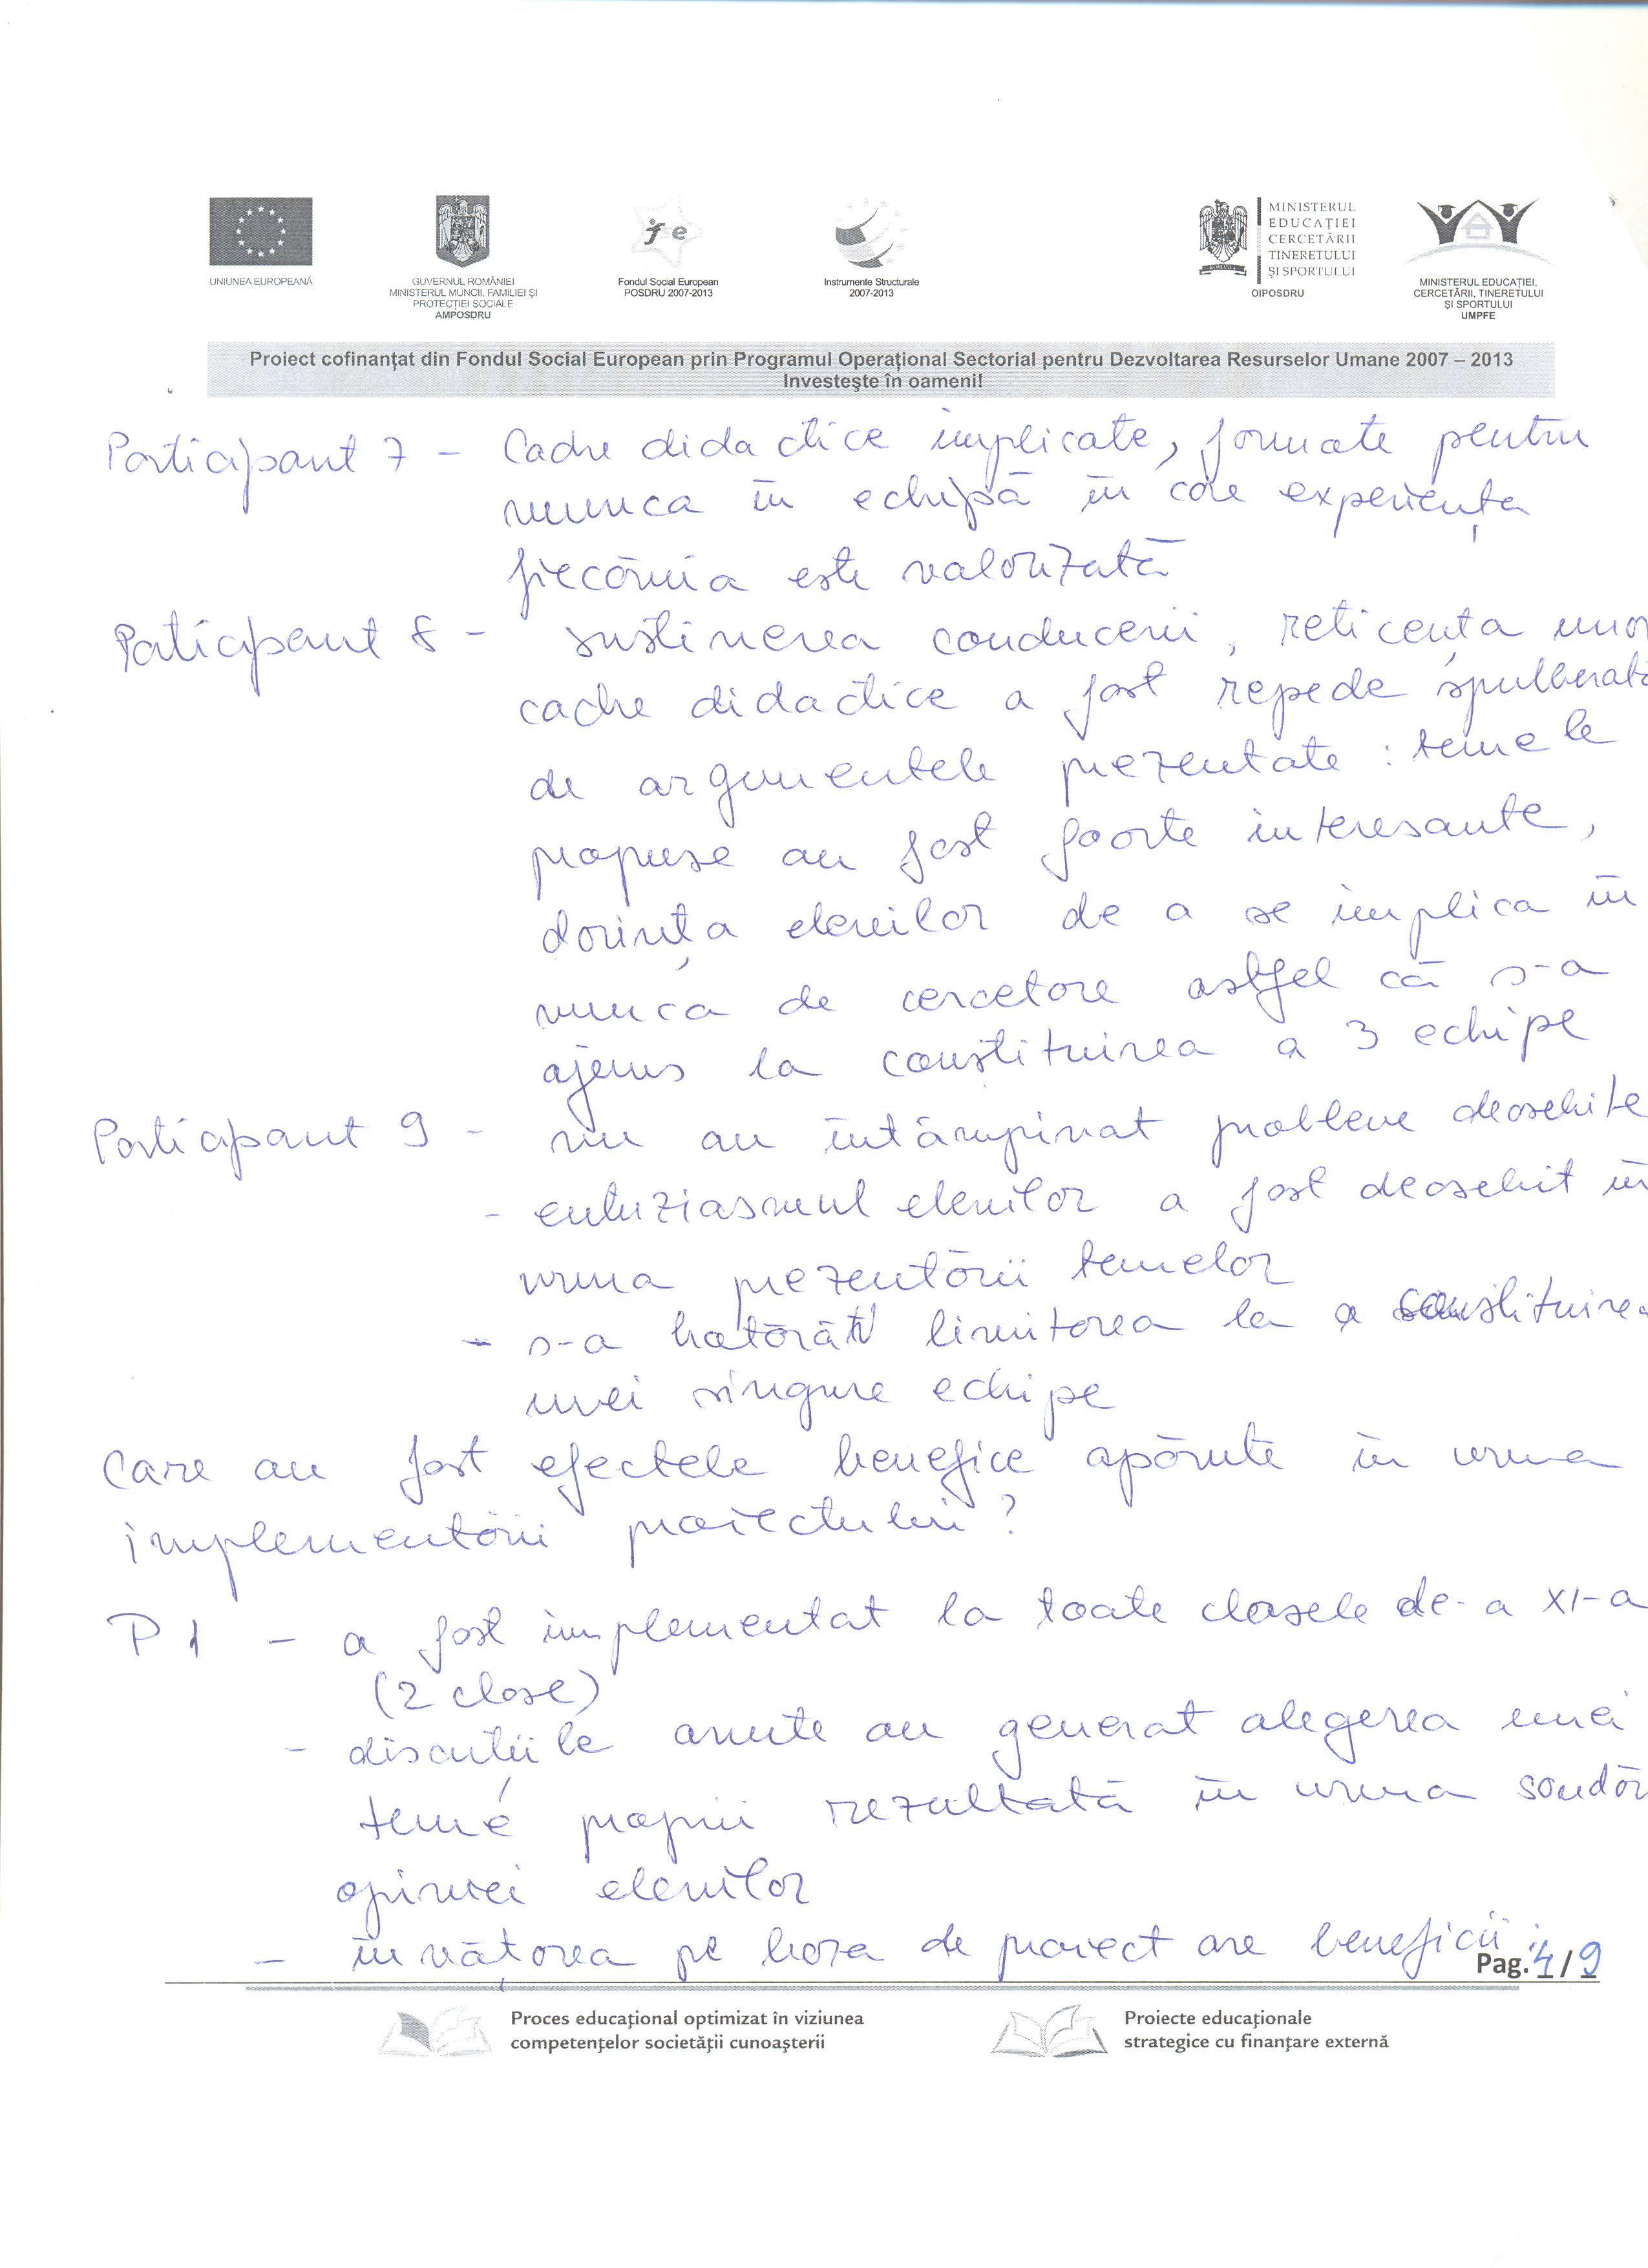 UNIUNEA EUROPEANĂ
GUVERNUL ROMÂNIEI
MINISTERUL MUNCII, FAMILIEI ŞI
PROTECŢIEI SOCIALE
AMPOSDRU
fse
Fondul Social European
POSDRU 2007-2013
Instrumente Structurale
2007-2013
MINISTERUL
EDUCAŢIEI
CERCETĂRII
TINERETULUI
ŞI SPORTULUI
OIPOSDRU
MINISTERUL EDUCAŢIEI,
CERCETĂRII, TINERETULUI
ŞI SPORTULUI
UMPFE
Proiect cofinanţat din Fondul Social European prin Programul Operaţional Sectorial pentru Dezvoltarea Resurselor Umane 2007 – 2013
Investeşte în oameni!
Participant 7 - Cadre didactice implicate, formate pentru
munca în echipă în care experiența
fiecăruia este valorizată
Participant 8 - susținerea conducerii, reticența unor
cadre didactice a fost repede spulberată
de argumentele prezentate : temele
propuse au fost foarte interesante,
dorința elevilor de a se implica în
munca de cercetare astfel că s-a
ajuns la constituirea a 3 echipe
Participant 9 - nu au întâmpinat probleme deosebite
- entuziasmul elevilor a fost deosebit în
urma prezentării temelor
- s-a hotărât limitarea la a constituirea
unei singure echipe
Care au fost efectele benefice apărute în urma
implementării proiectului ?
P1 - a fost implementat la toate clasele de-a XI-a
(2 clase)
- discuțiile avute au generat alegerea unei
teme proprii rezultată în urma sondăr
opiniei elevilor
- învățarea pe baza de proiect are beneficii :
Pag. 4 / 9
Proces educaţional optimizat în viziunea
competenţelor societăţii cunoaşterii
Proiecte educaţionale
strategice cu finanţare externă